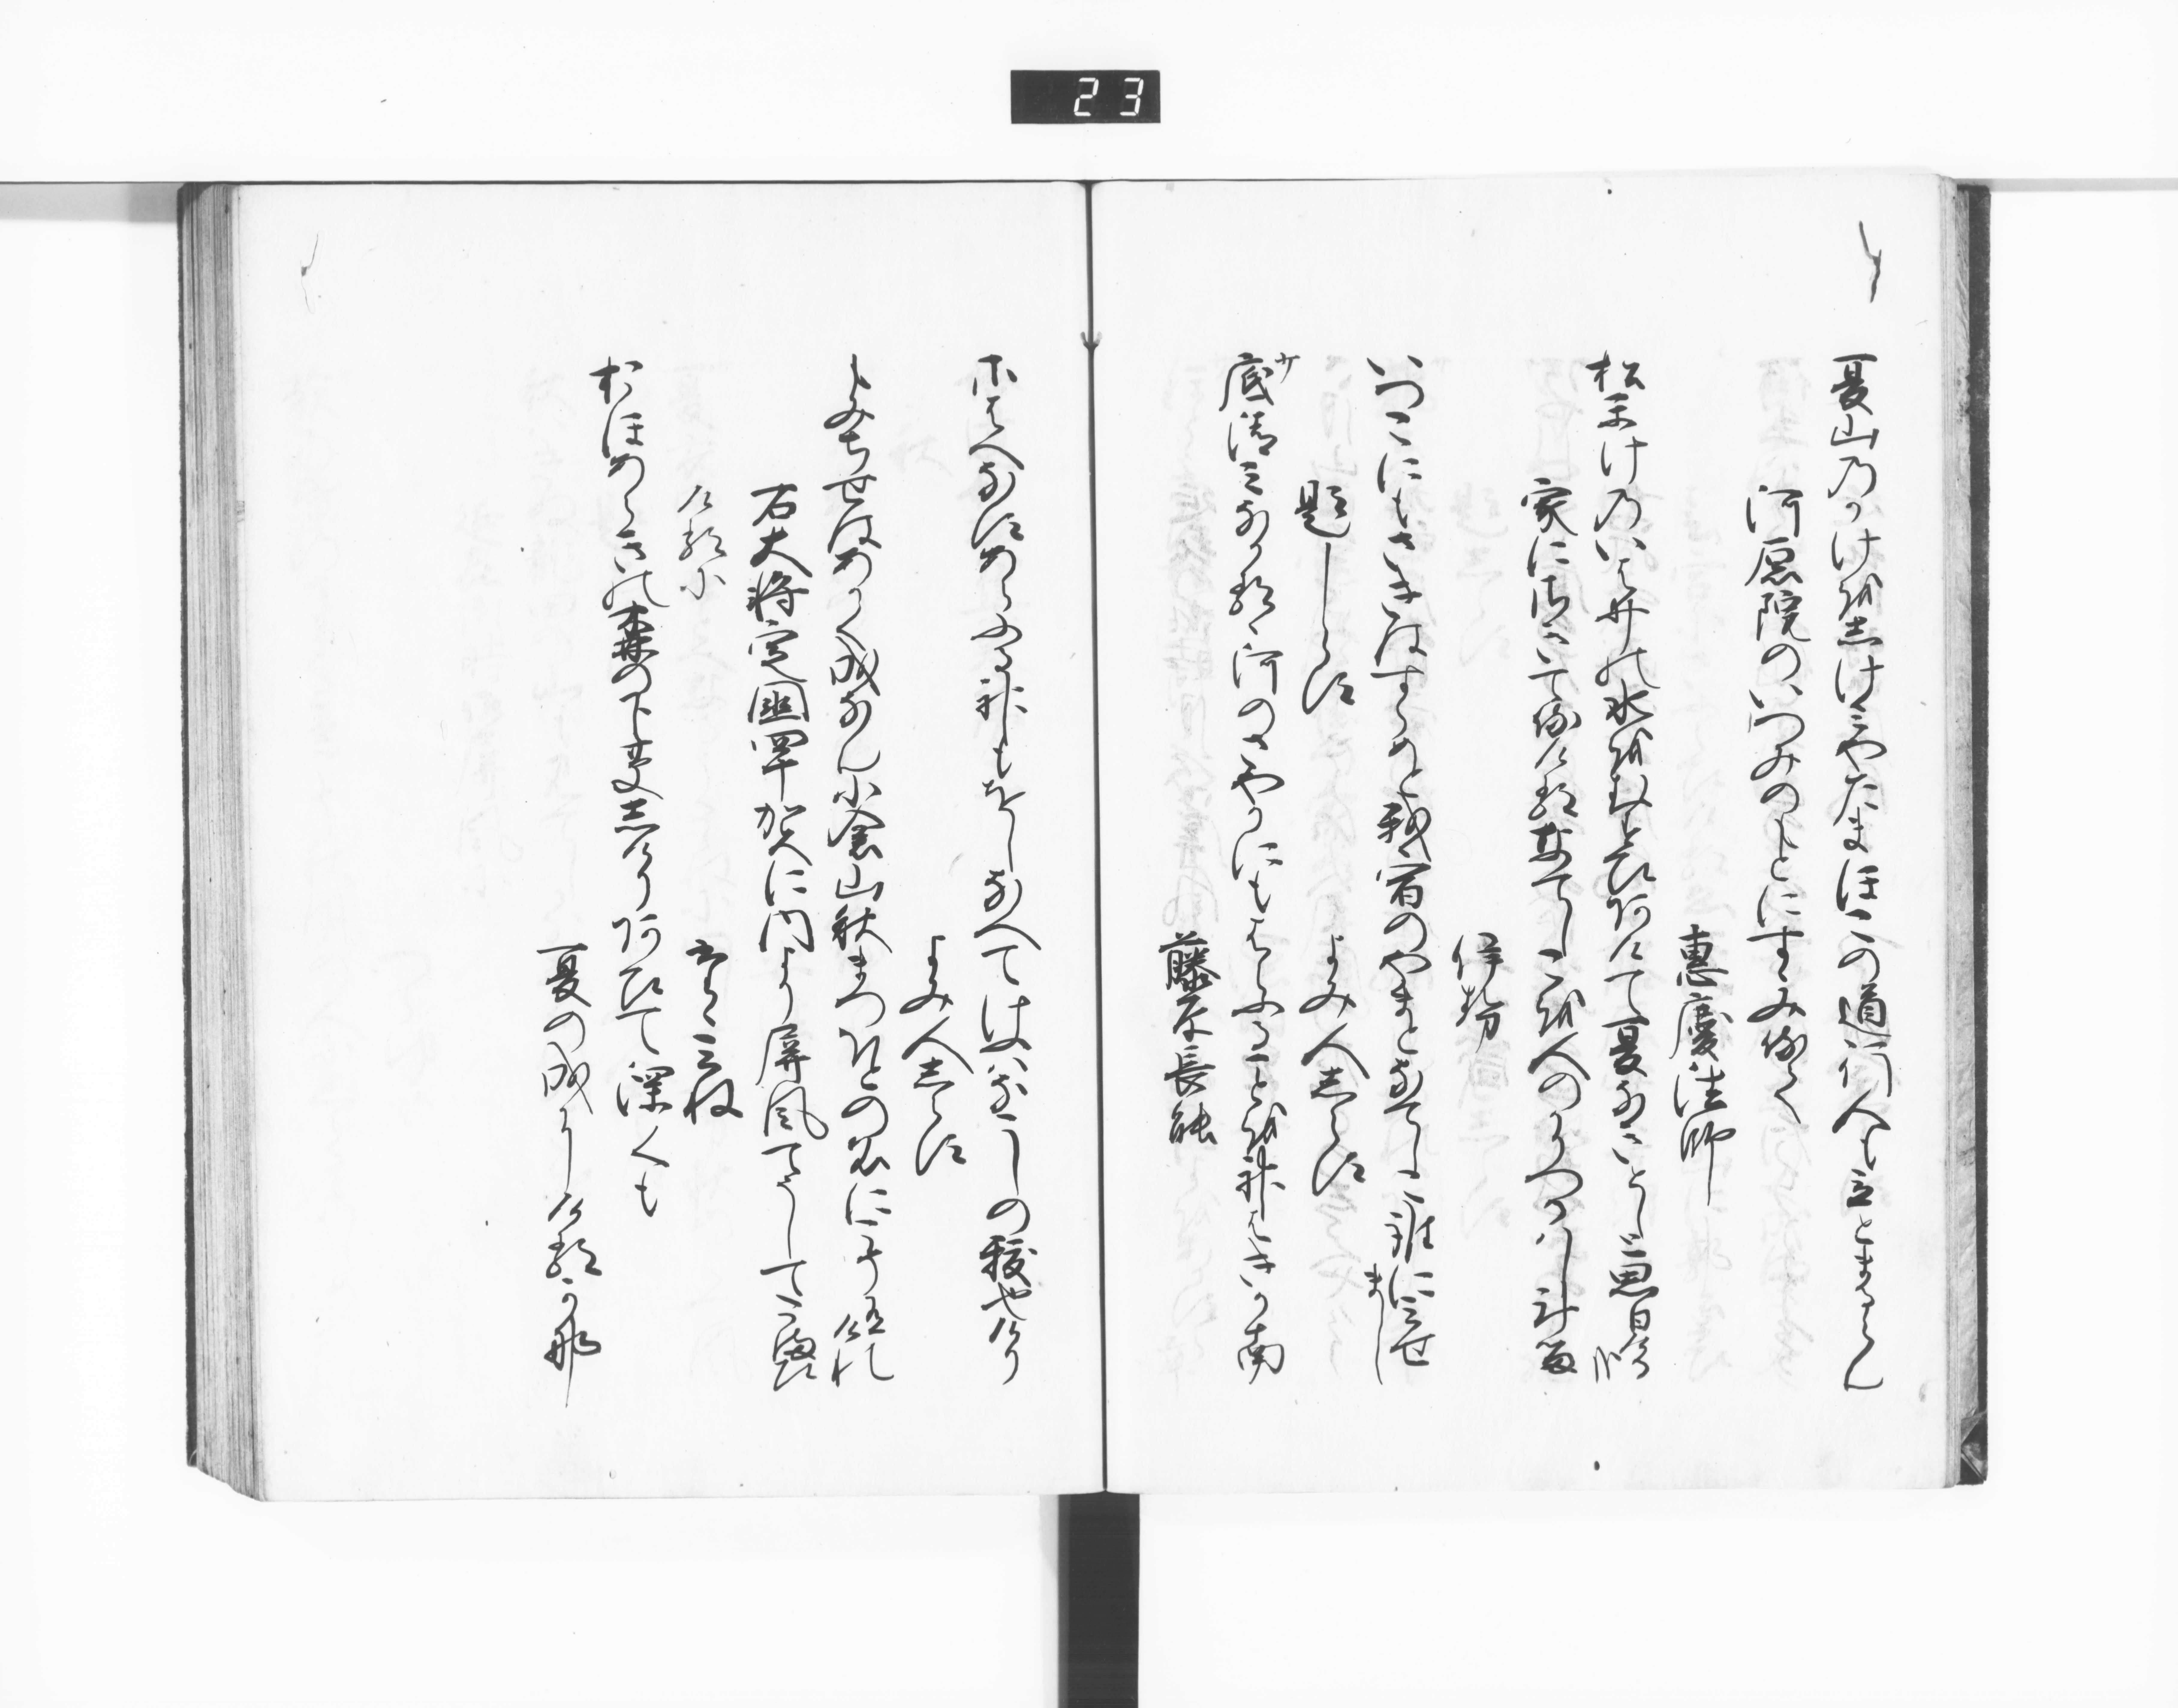 23
夏山のかけをしけみやたまほこの道行人も立とまるらん
河原院のいつみのもとにすゝみ侍て
恵慶法師
松かけのいは井の水をむすひあけて夏なきとしと思日哉
家にさきて侍けるなてしこを人のかりつかはしける
伊勢
いつこにもさきはすらめと我宿のやまとなてしこ誰に見せまし
題しらす
よみ人しらす
底清みなかるゝ河のさやかにもはらふることを神はきかなん
サ
藤原長能
さはへなすあらふる神もをしなへてけふはなこしの祓也けり
よみ人しらす
もみちせはあかくなりなん小倉山秋まつほとの名にこそ有けれ
右大将定国四十賀に内より屏風てうしてたまひ
けるに
たゝみね
おほあらきの森の下草しけりあひて深くも
夏の成にけるかな